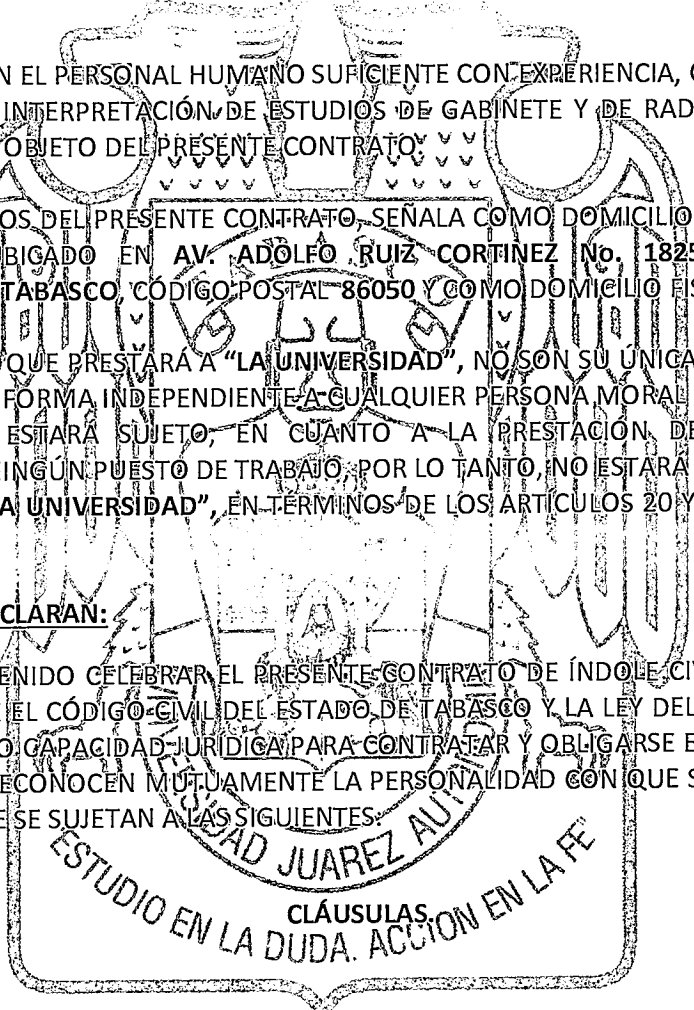 N EL PERSONAL HUMANO SUFICIENTE CON EXPERIENCIA,
INTERPRETACIÓN DE ESTUDIOS DE GABINETE Y DE RAD
OBJETO DEL PRESENTE CONTRATO.
OS DEL PRESENTE CONTRATO, SEÑALA COMO DOMICILIO
BICADO EN AV. ADOLFO RUIZ CORTINEZ No. 1825
TABASCO, CÓDIGO POSTAL 86050 Y COMO DOMICILIO FIS
QUE PRESTARÁ A “LA UNIVERSIDAD”, NO SON SU ÚNICA
FORMA INDEPENDIENTE A CUALQUIER PERSONA MORAL
ESTARÁ SUJETO, EN CUANTO A LA PRESTACIÓN DE
INGÚN PUESTO DE TRABAJO, POR LO TANTO, NO ESTARÁ
A UNIVERSIDAD”, EN TÉRMINOS DE LOS ARTÍCULOS 20 Y
CLARAN:
ENIDO CELEBRAR EL PRESENTE CONTRATO DE ÍNDOLE CIV
EL CÓDIGO CIVIL DEL ESTADO DE TABASCO Y LA LEY DEL
O CAPACIDAD JURÍDICA PARA CONTRATAR Y OBLIGARSE E
ECONOCEN MUTUAMENTE LA PERSONALIDAD CON QUE S
E SE SUJETAN A LAS SIGUIENTES:
ERSIDAD JUAREZ AUTON
"ESTUDIO EN LA DUDA. ACCION EN LA FE"
CLÁUSULAS.